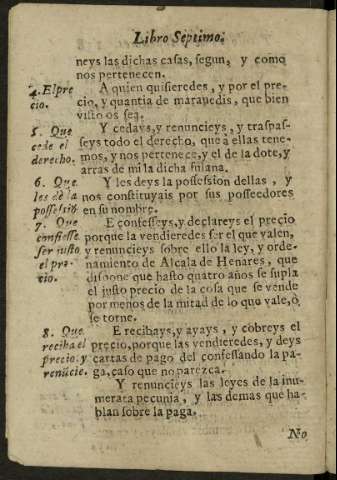 Libro Septimo.
neys las dichas casas, segun, y como
nos pertenecen.
4. El pre
cio.
A quien quisieredes, y por el pre-
cio, y quantia de marauedis, que bien
visto os sea.
5. Que
cede el
derecho.
Y cedays, y renuncieys, y traspas-
seys todo el derecho, que a ellas tene-
mos, y nos pertenece, y el de la dote, y
arras de mi la dicha fulana.
6. Que
les dè la
possessiõ
Y les deys la possession dellas, y
nos constituyais por sus posseedores
en su nombre.
7. Que
confiesse
ser justo
el pre-
cio.
E confesseys, y declareys el precio
porque la vendieredes ser el que valen,
y renuncieys sobre ello la ley, y orde-
namiento de Alcala de Henares, que
dispone que hasto quatro años se supla
el justo precio de la cosa que se vende
por menos de la mitad de lo que vale, ò
se torne.
8. Que
reciba el
precio: y
renũcie.
E recibays, y ayays, y cobreys el
precio, porque las vendieredes, y deys
cartas de pago del confessando la pa-
ga, caso que no parezca.
Y renuncieys las leyes de la inu-
merata pecunia, y las demas que ha-
blan sobre la paga.
No